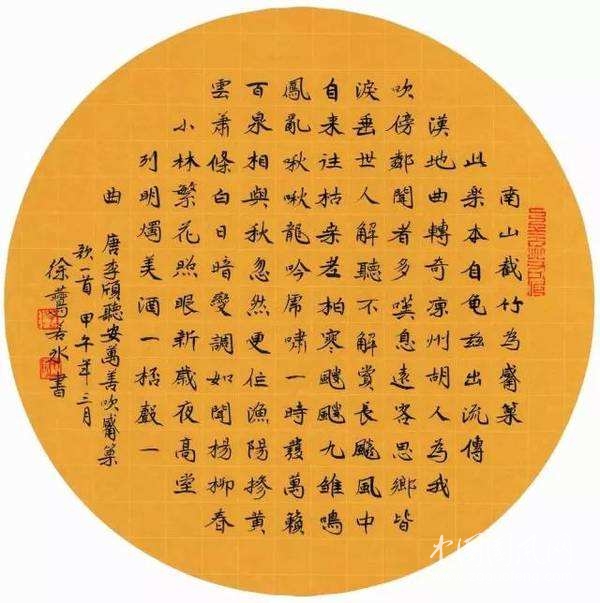 南山截竹為觱篥
此楽本自龜茲出流傳
漢地曲轉奇凉州胡人為我
吹傍鄰聞者多嘆息遠客思鄉皆
淚垂世人解聽不解賞長飈風中
自来往枯桒老柏寒颼飀九雛鳴
鳳亂啾啾龍吟虎嘯一時發萬籟
百泉相與秋忽然更作漁陽摻黄
雲蕭條白日暗變調如聞楊柳春
小林繁花照眼新歲夜高堂
列明燭美酒一桮聲一
曲
唐李頎聽安萬善吹觱篥
歌一首 甲午年三月
徐若水書